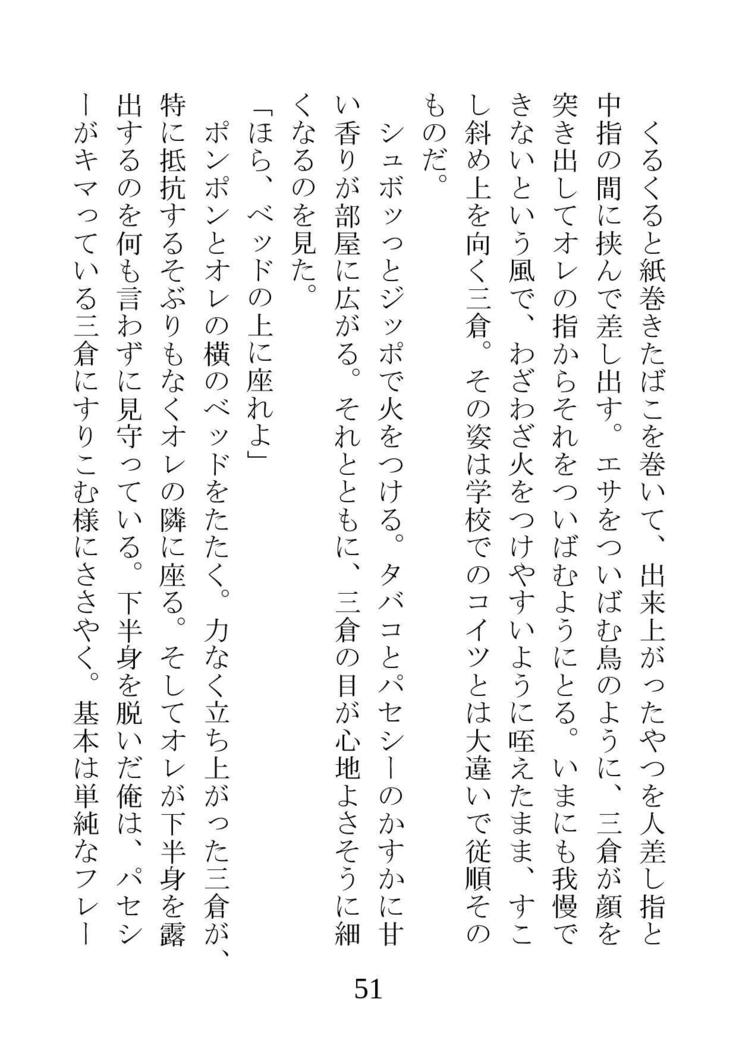 くるくると紙巻きたばこを巻いて、出来上がったやつを人差し指と
中指の間に挟んで差し出す。エサをついばむ鳥のように、三倉が顔を
突き出してオレの指からそれをついばむようにとる。いまにも我慢で
きないという風で、わざわざ火をつけやすいように咥えたまま、すこ
し斜め上を向く三倉。その姿は学校でのコイツとは大違いで従順その
ものだ。
シュボッっとジッポで火をつける。タバコとパセシーのかすかに甘
い香りが部屋に広がる。それとともに、三倉の目が心地よさそうに細
くなるのを見た。
「ほら、ベッドの上に座れよ」
ポンポンとオレの横のベッドをたたく。力なく立ち上がった三倉が、
特に抵抗するそぶりもなくオレの隣に座る。そしてオレが下半身を露
出するのを何も言わずに見守っている。下半身を脱いだ俺は、パセシ
ーがキマっている三倉にすりこむ様にささやく。基本は単純なフレー
51